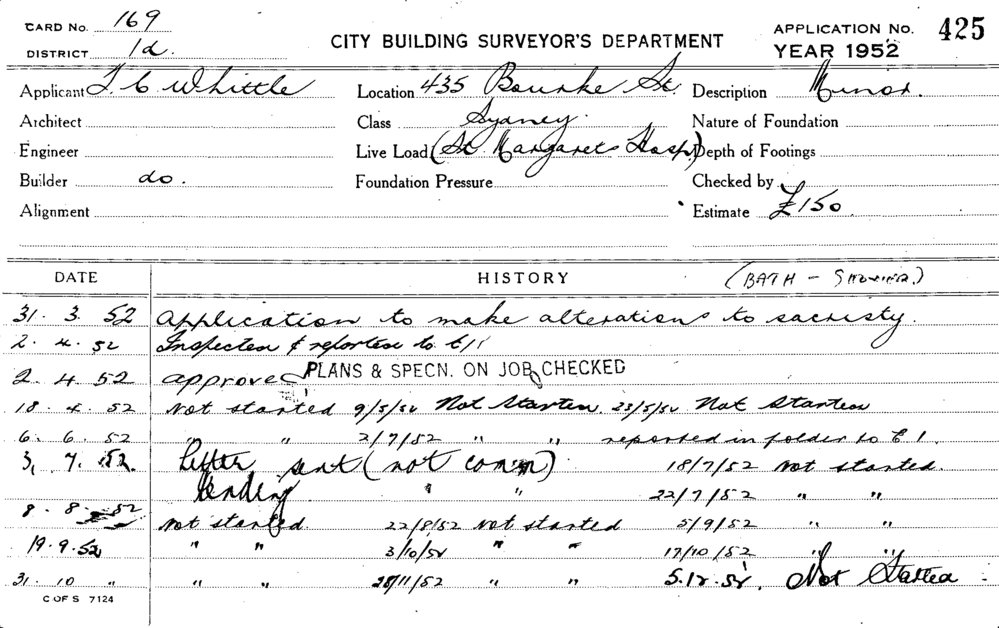 CARD No. 169
DISTRICT 1d.
CITY BUILDING SURVEYOR'S DEPARTMENT
APPLICATION No. 425
YEAR 1952
Applicant T. C. Whittle Location 435 Bourke St. Description Minor.
Architect Class Sydney. Nature of Foundation
Engineer Live Load (St. Margarets Hosp) Depth of Footings
Builder do. Foundation Pressure Checked by
Alignment Estimate £150.
DATE HISTORY (BATH - SHOWER.)
31. 3. 52 Application to make alterations to sacristy.
2. 4. 52 Inspected & reported to
2. 4. 52 approved PLANS & SPECN. ON JOB CHECKED
18. 4. 52 Not started 9/5/52 Not Started 23/5/52 Not Started
6. 6. 52 " " 2/7/52 " " reported in folder to C 1.
3. 7. 52 Letter sent (not comm) 18/7/52 Not started.
Pending " " 22/7/52 " "
8. 8. 52 Not started. 22/8/52 Not started 5/9/52 " "
19. 9. 52 " " 3/10/52 " " 17/10/52 " "
31. 10 " " " 28/11/52 " " 5.12.52. Not Started
C OF S 7124